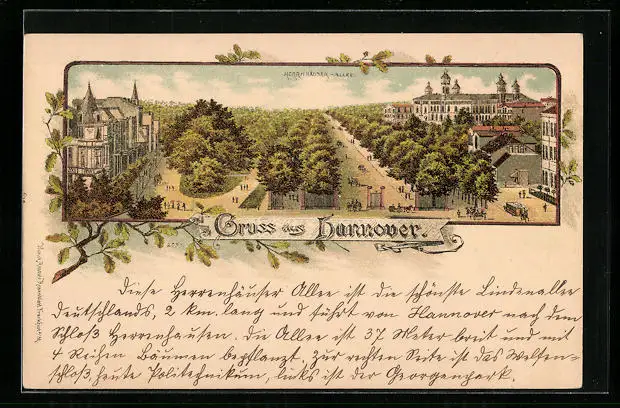 HERRENHÄUSER-ALLEE
Gruss aus Hannover.
Diese Herrenhäuser Allee ist die schönste Lindenallee
Deutschlands, 2 km. lang und führt von Hannover nach dem
Schloß Herrenhausen. Die Allee ist 37 Meter breit und mit
4 Reihen Bäumen bepflanzt. Zur rechten Seite ist das Welfen-
schloß, heute Politechnikum, links ist der Georgenpark.